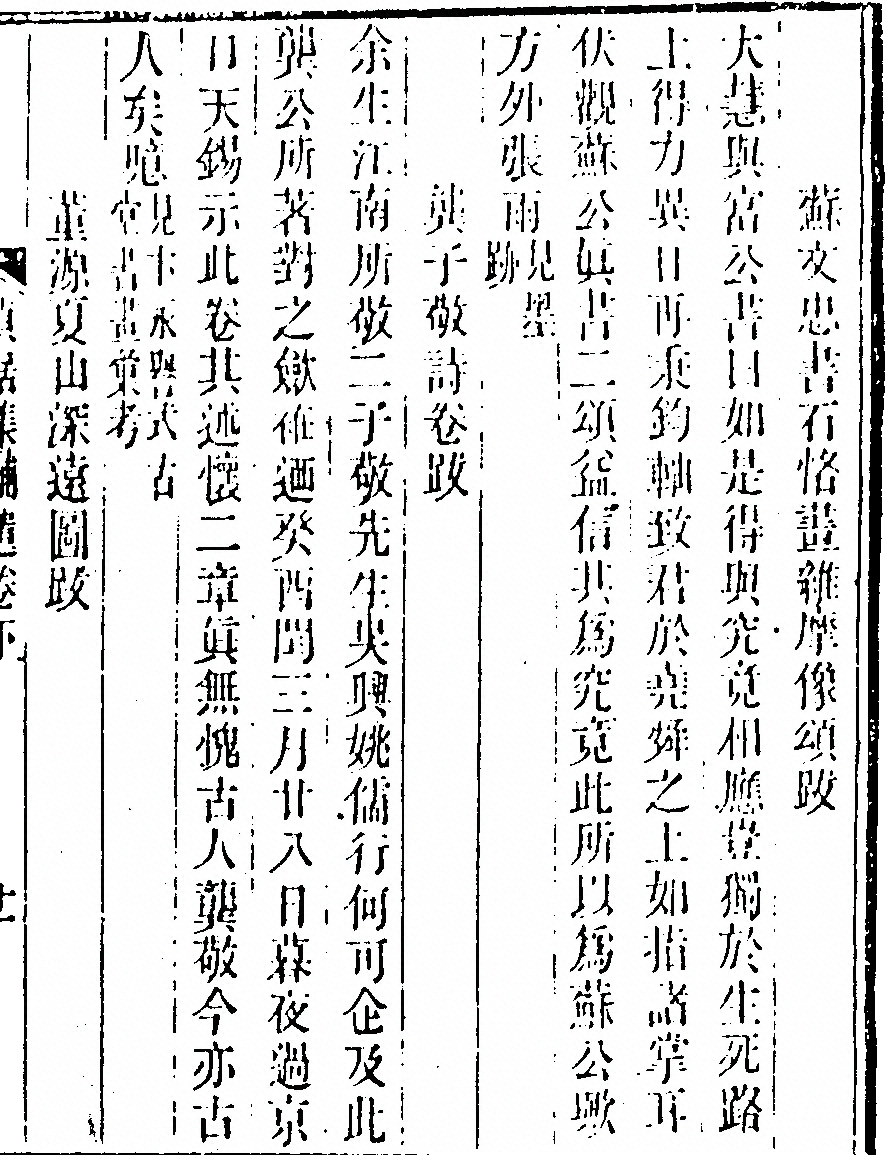 蘇文忠書石恪畫維摩像頌跋
大慧與富公書曰如是得與究竟相應豈獨於生死路
上得力異日再秉鈞軸致君於堯舜之上如指諸掌耳
伏觀蘇公眞書二頌益信其爲究竟此所以爲蘇公歟
方外張雨見墨跡
龔子敬詩卷跋
余生江南所敬二子敬先生吳興姚儒行何可企及此
龔公所著對之斂袵迺癸酉閏三月廿八日暮夜過京
口天錫示此卷其述懷二章眞無愧古人龔敬今亦古
人矣噫見卞永譽式古堂書畫彙考
董源夏山深遠圖跋
貞居集補遺卷下